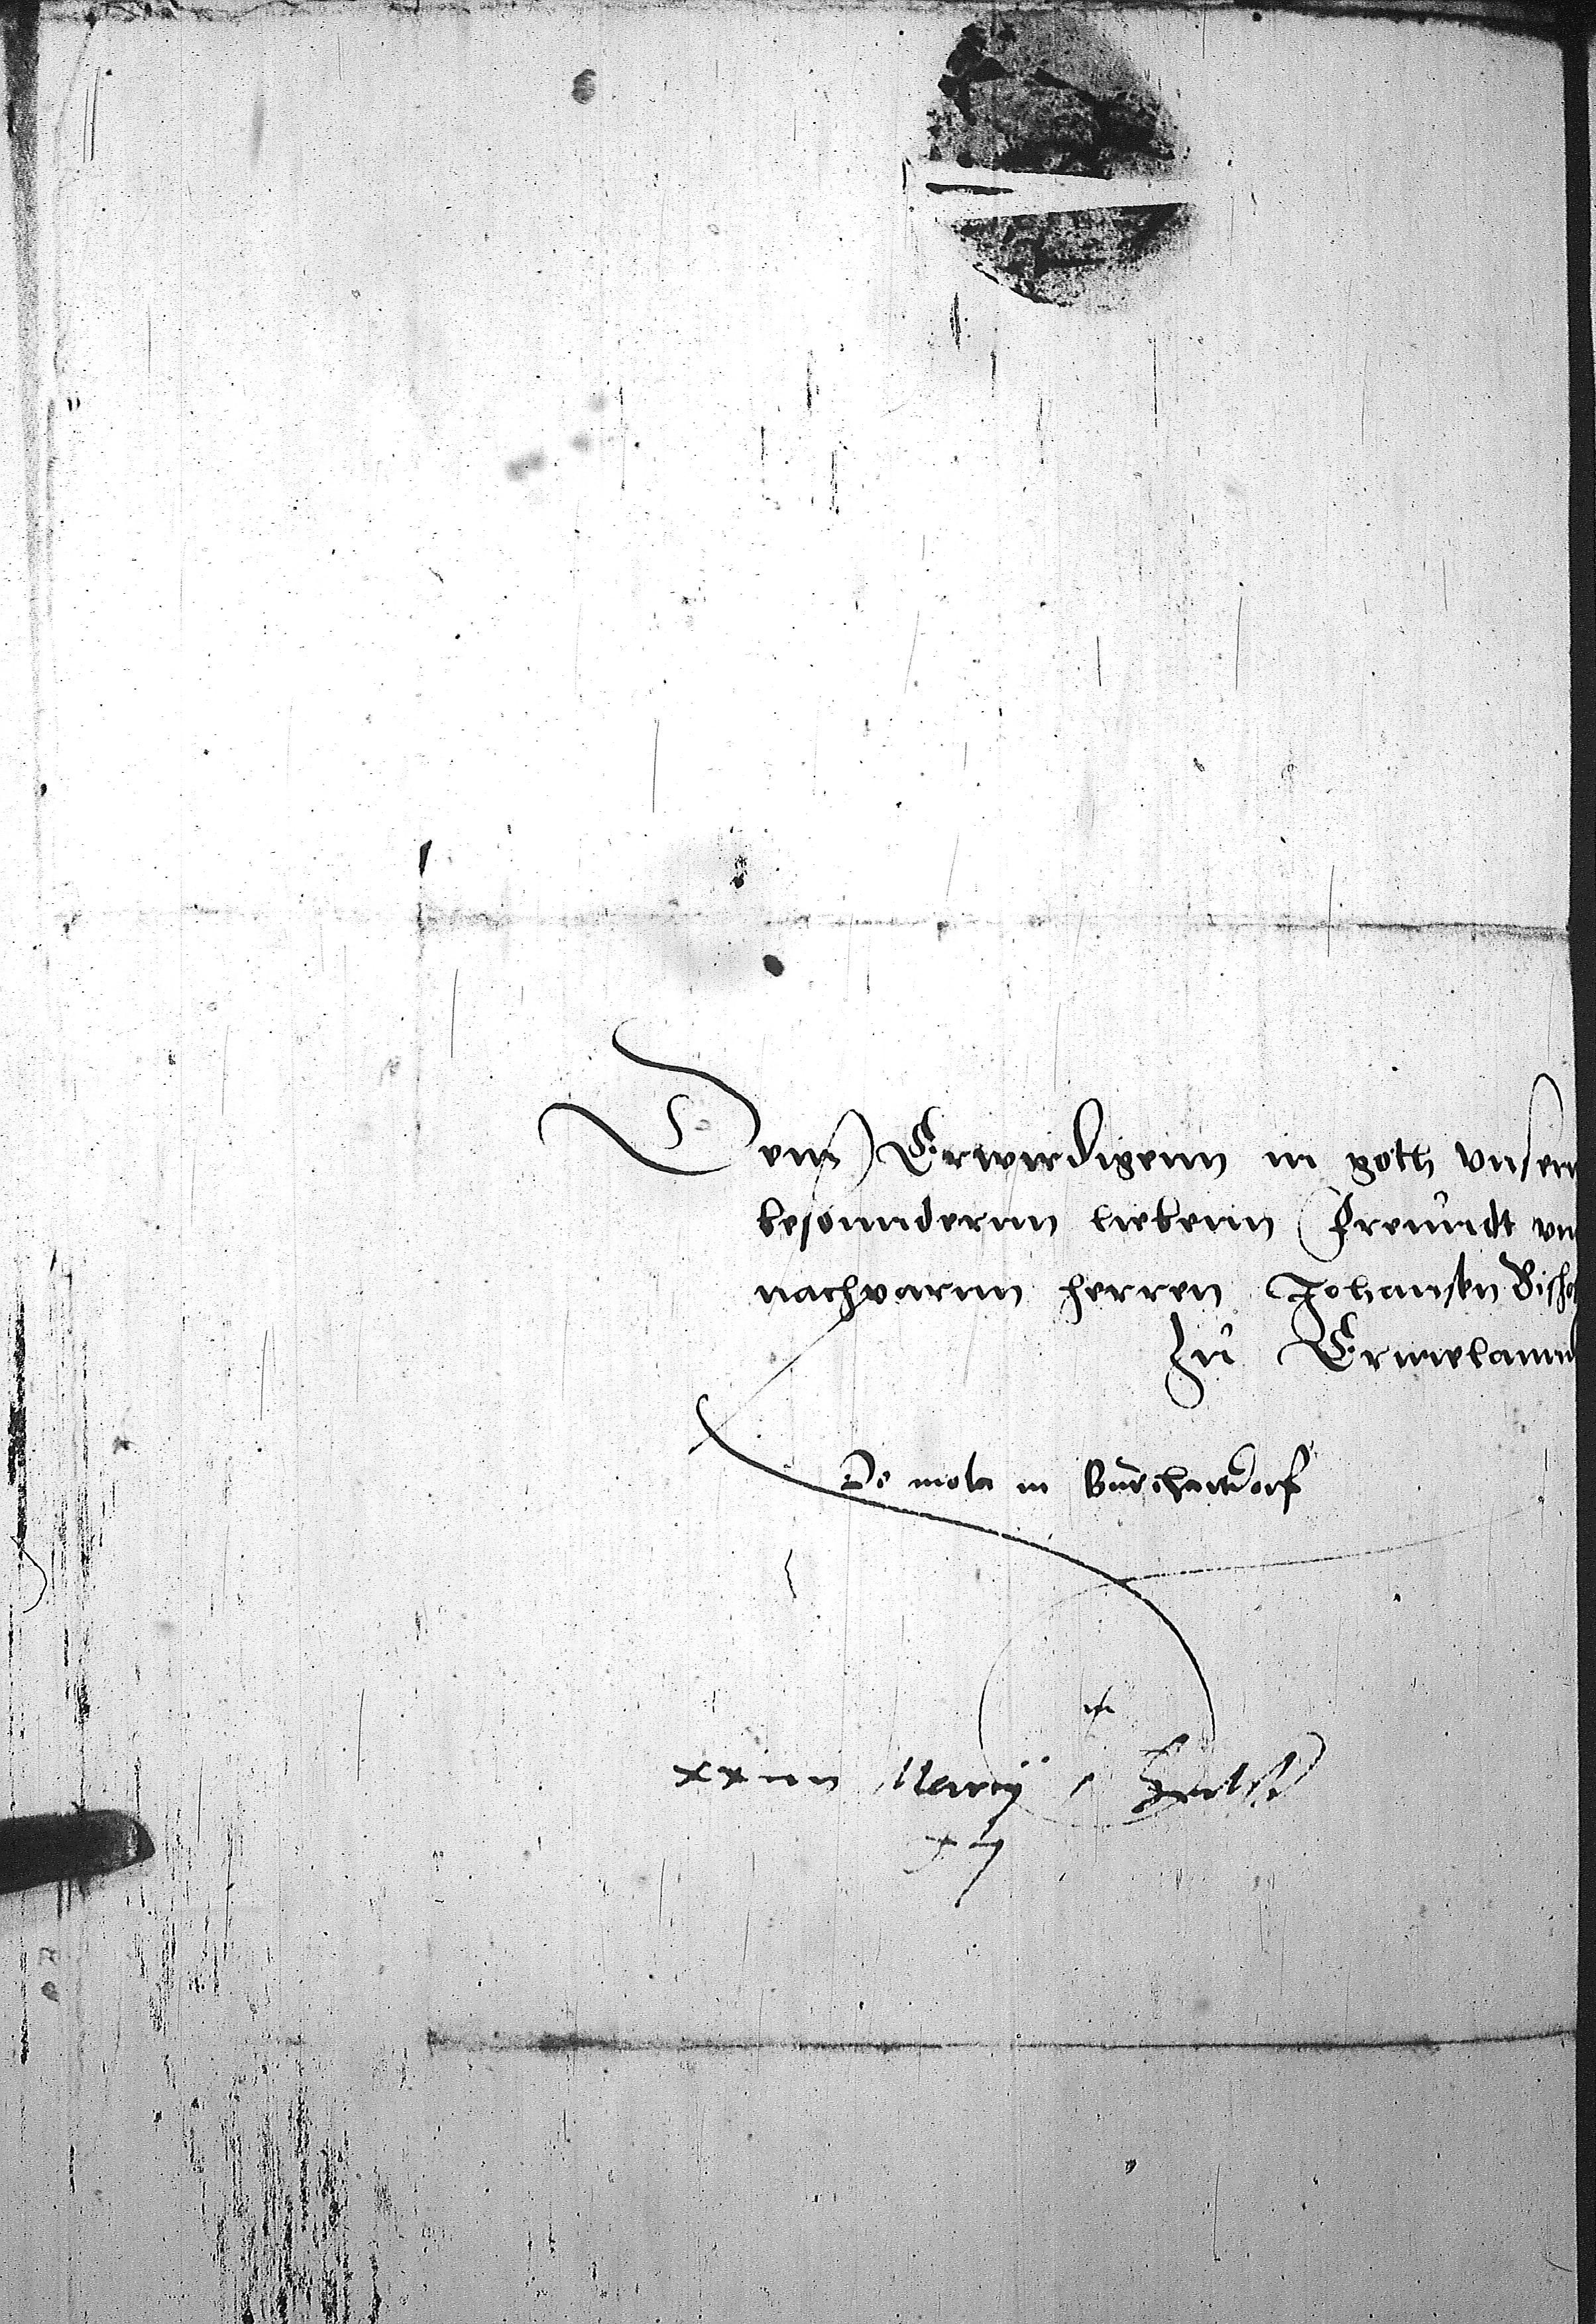 Dem Erwirdigenn in goth vnsern
besonndernn liebenn freundt vn
nachparnn herren Johansen Bischo
zu Ermelannd
De mola in Burchartdorf
xxiiii Marcij